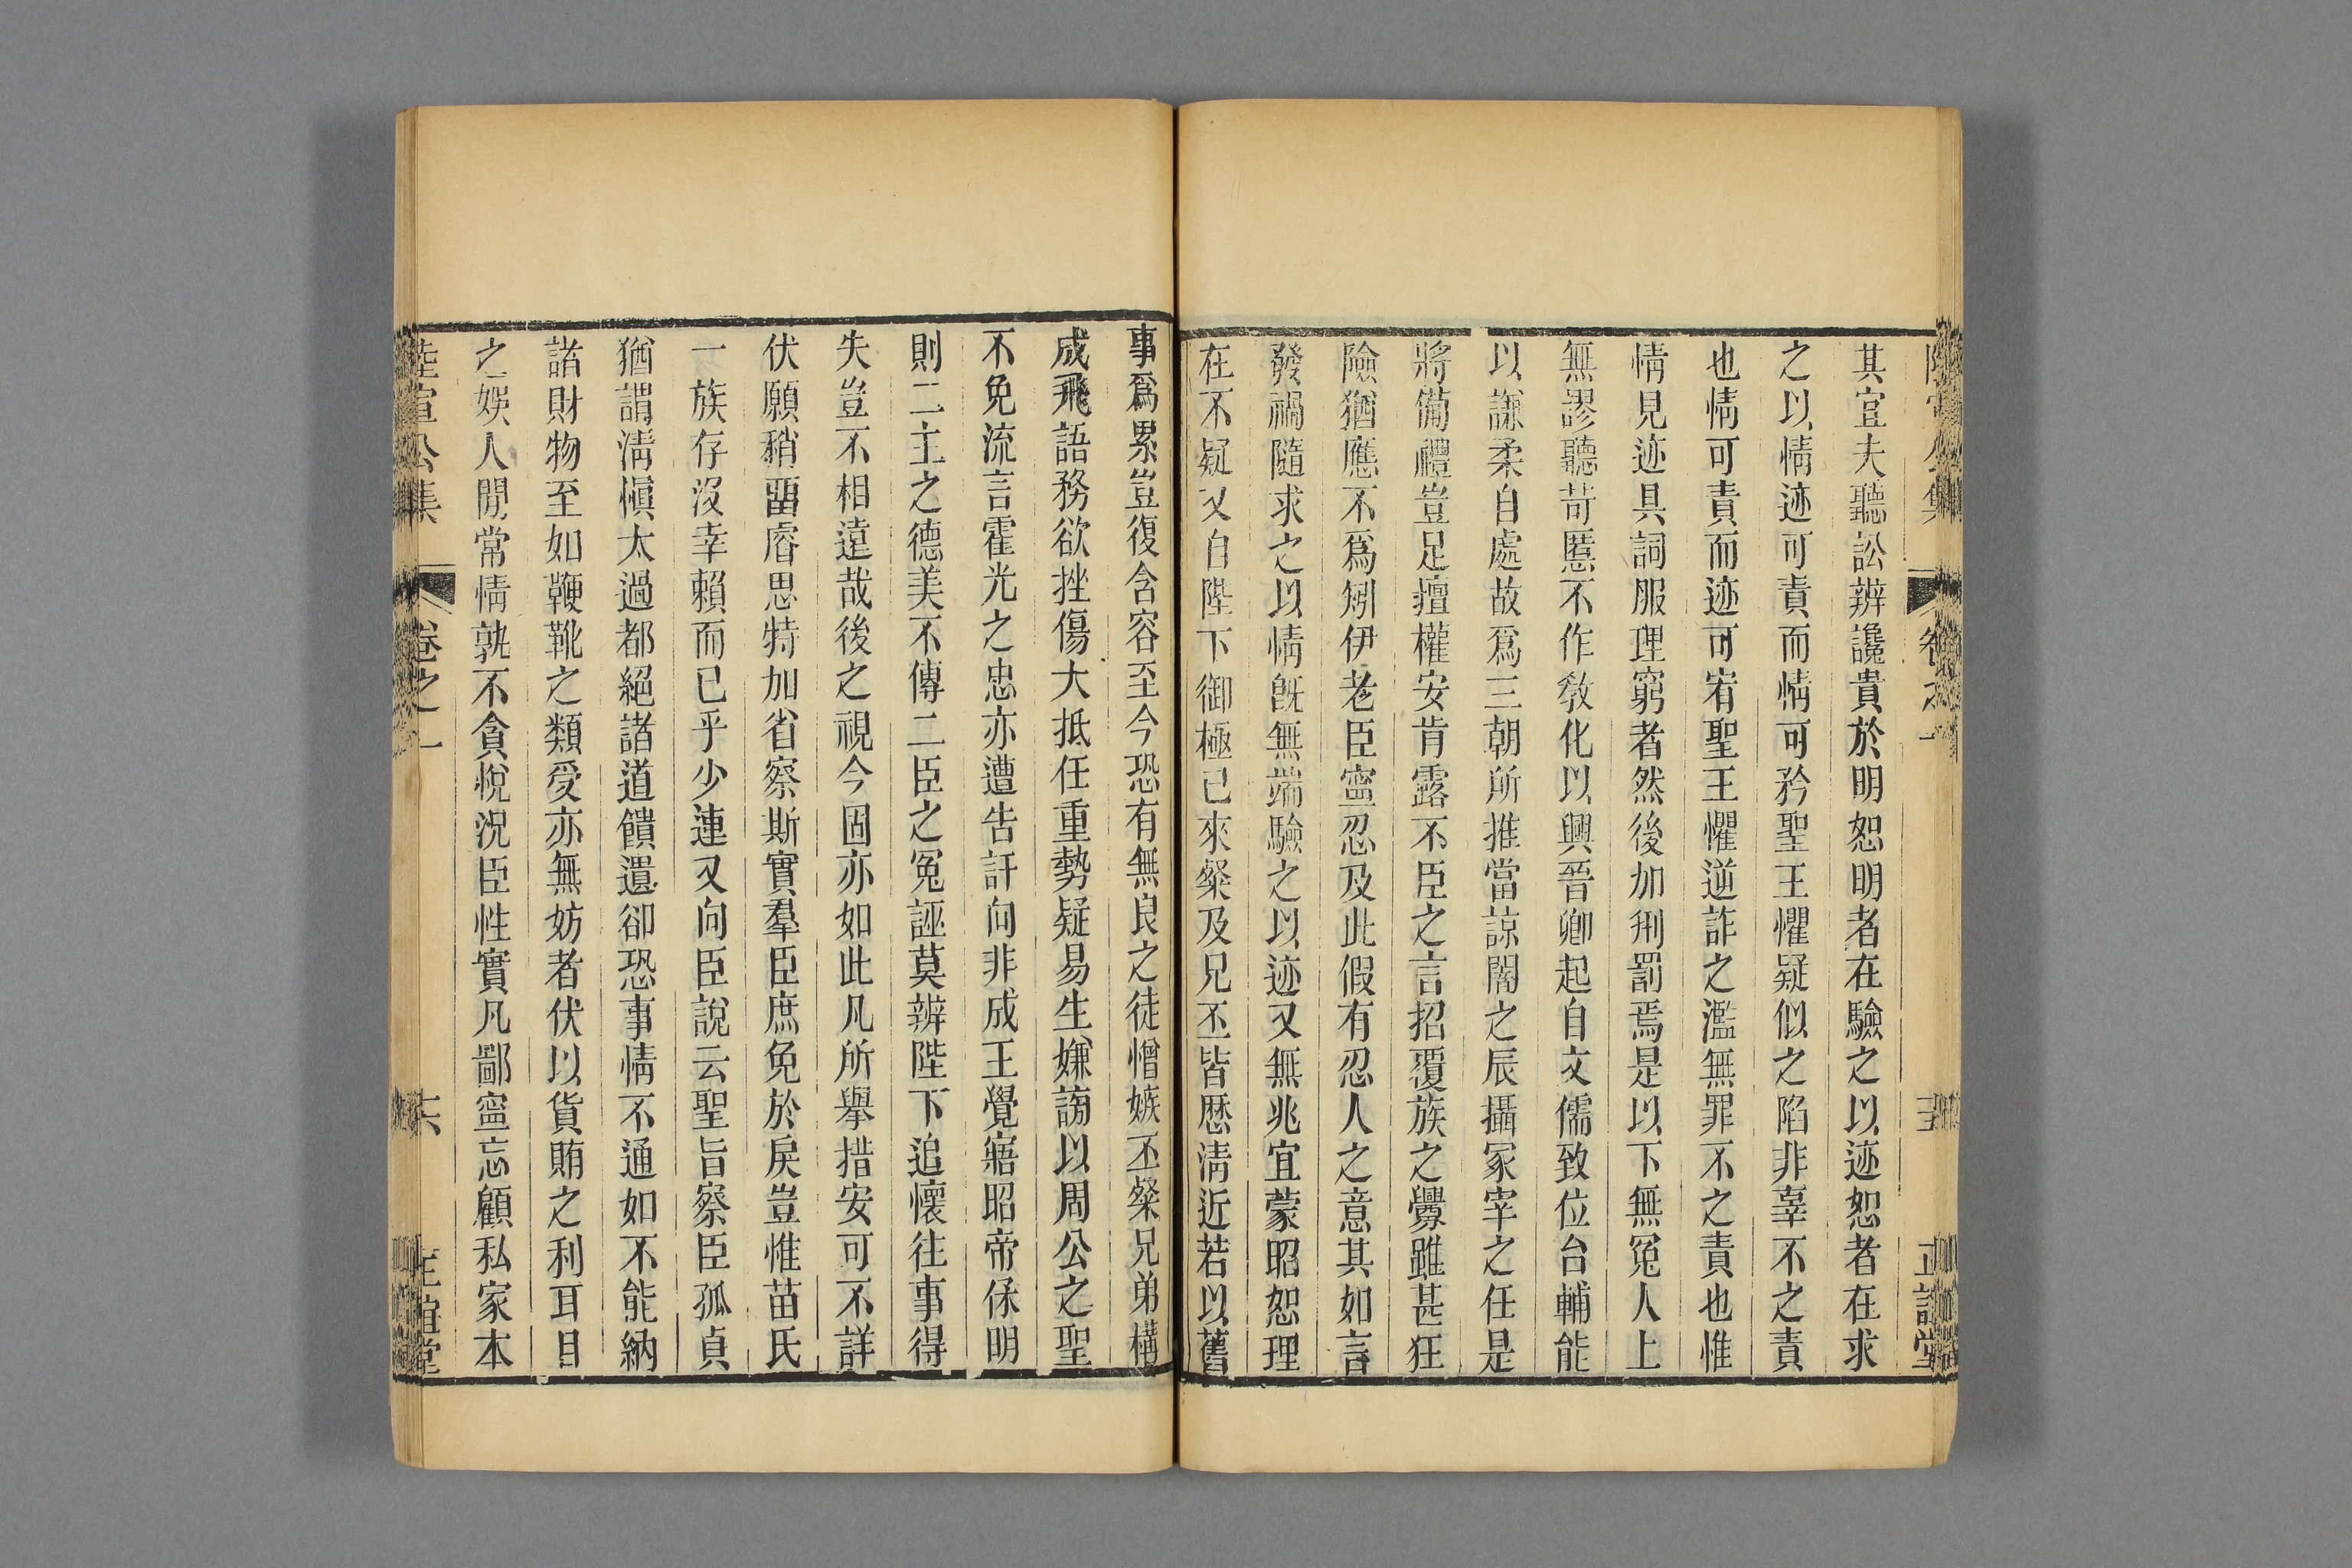 其宜夫聽訟辨讒貴於明恕明者在驗之以迹恕者在求
之以情迹可責而情可矜聖王懼疑似之陷非辜不之責
也情可責而迹可宥聖王懼逆詐之濫無罪不之責也惟
情見迹具詞服理窮者然後加刑罰焉是以下無冤人上
無謬聽苛慝不作教化以興晉卿起自文儒致位台輔能
以謙柔自處故爲三朝所推當諒闇之辰攝冢宰之任是
將備禮豈足擅權安肯露不臣之言招覆族之釁雖甚狂
險猶應不爲矧伊老臣寧忍及此假有忍人之意其如言
發禍隨求之以情旣無端驗之以迹又無兆宜蒙昭恕理
在不疑又自陛下御極已來粲及兄丕皆歷清近若以舊
事爲累豈復含容至今恐有無良之徒憎嫉丕粲兄弟構
成飛語務欲挫傷大抵任重勢疑易生嫌謗以周公之聖
不免流言霍光之忠亦遭告訐向非成王覺寤昭帝保明
則二主之德美不傳二臣之冤誣莫辨陛下追懷往事得
失豈不相遠哉後之視今固亦如此凡所舉措安可不詳
伏願稍畱睿思特加省察斯實羣臣庶免於戾豈惟苗氏
一族存沒幸賴而已乎少連又向臣說云聖旨察臣孤貞
猶謂清愼太過都絕諸道饋遺卻恐事情不通如不能納
諸財物至如鞭靴之類受亦無妨者伏以貨賄之利耳目
之娛人閒常情孰不貪悅況臣性實凡鄙寧忘顧私家本
陸宣公集 卷之一 六 正誼堂